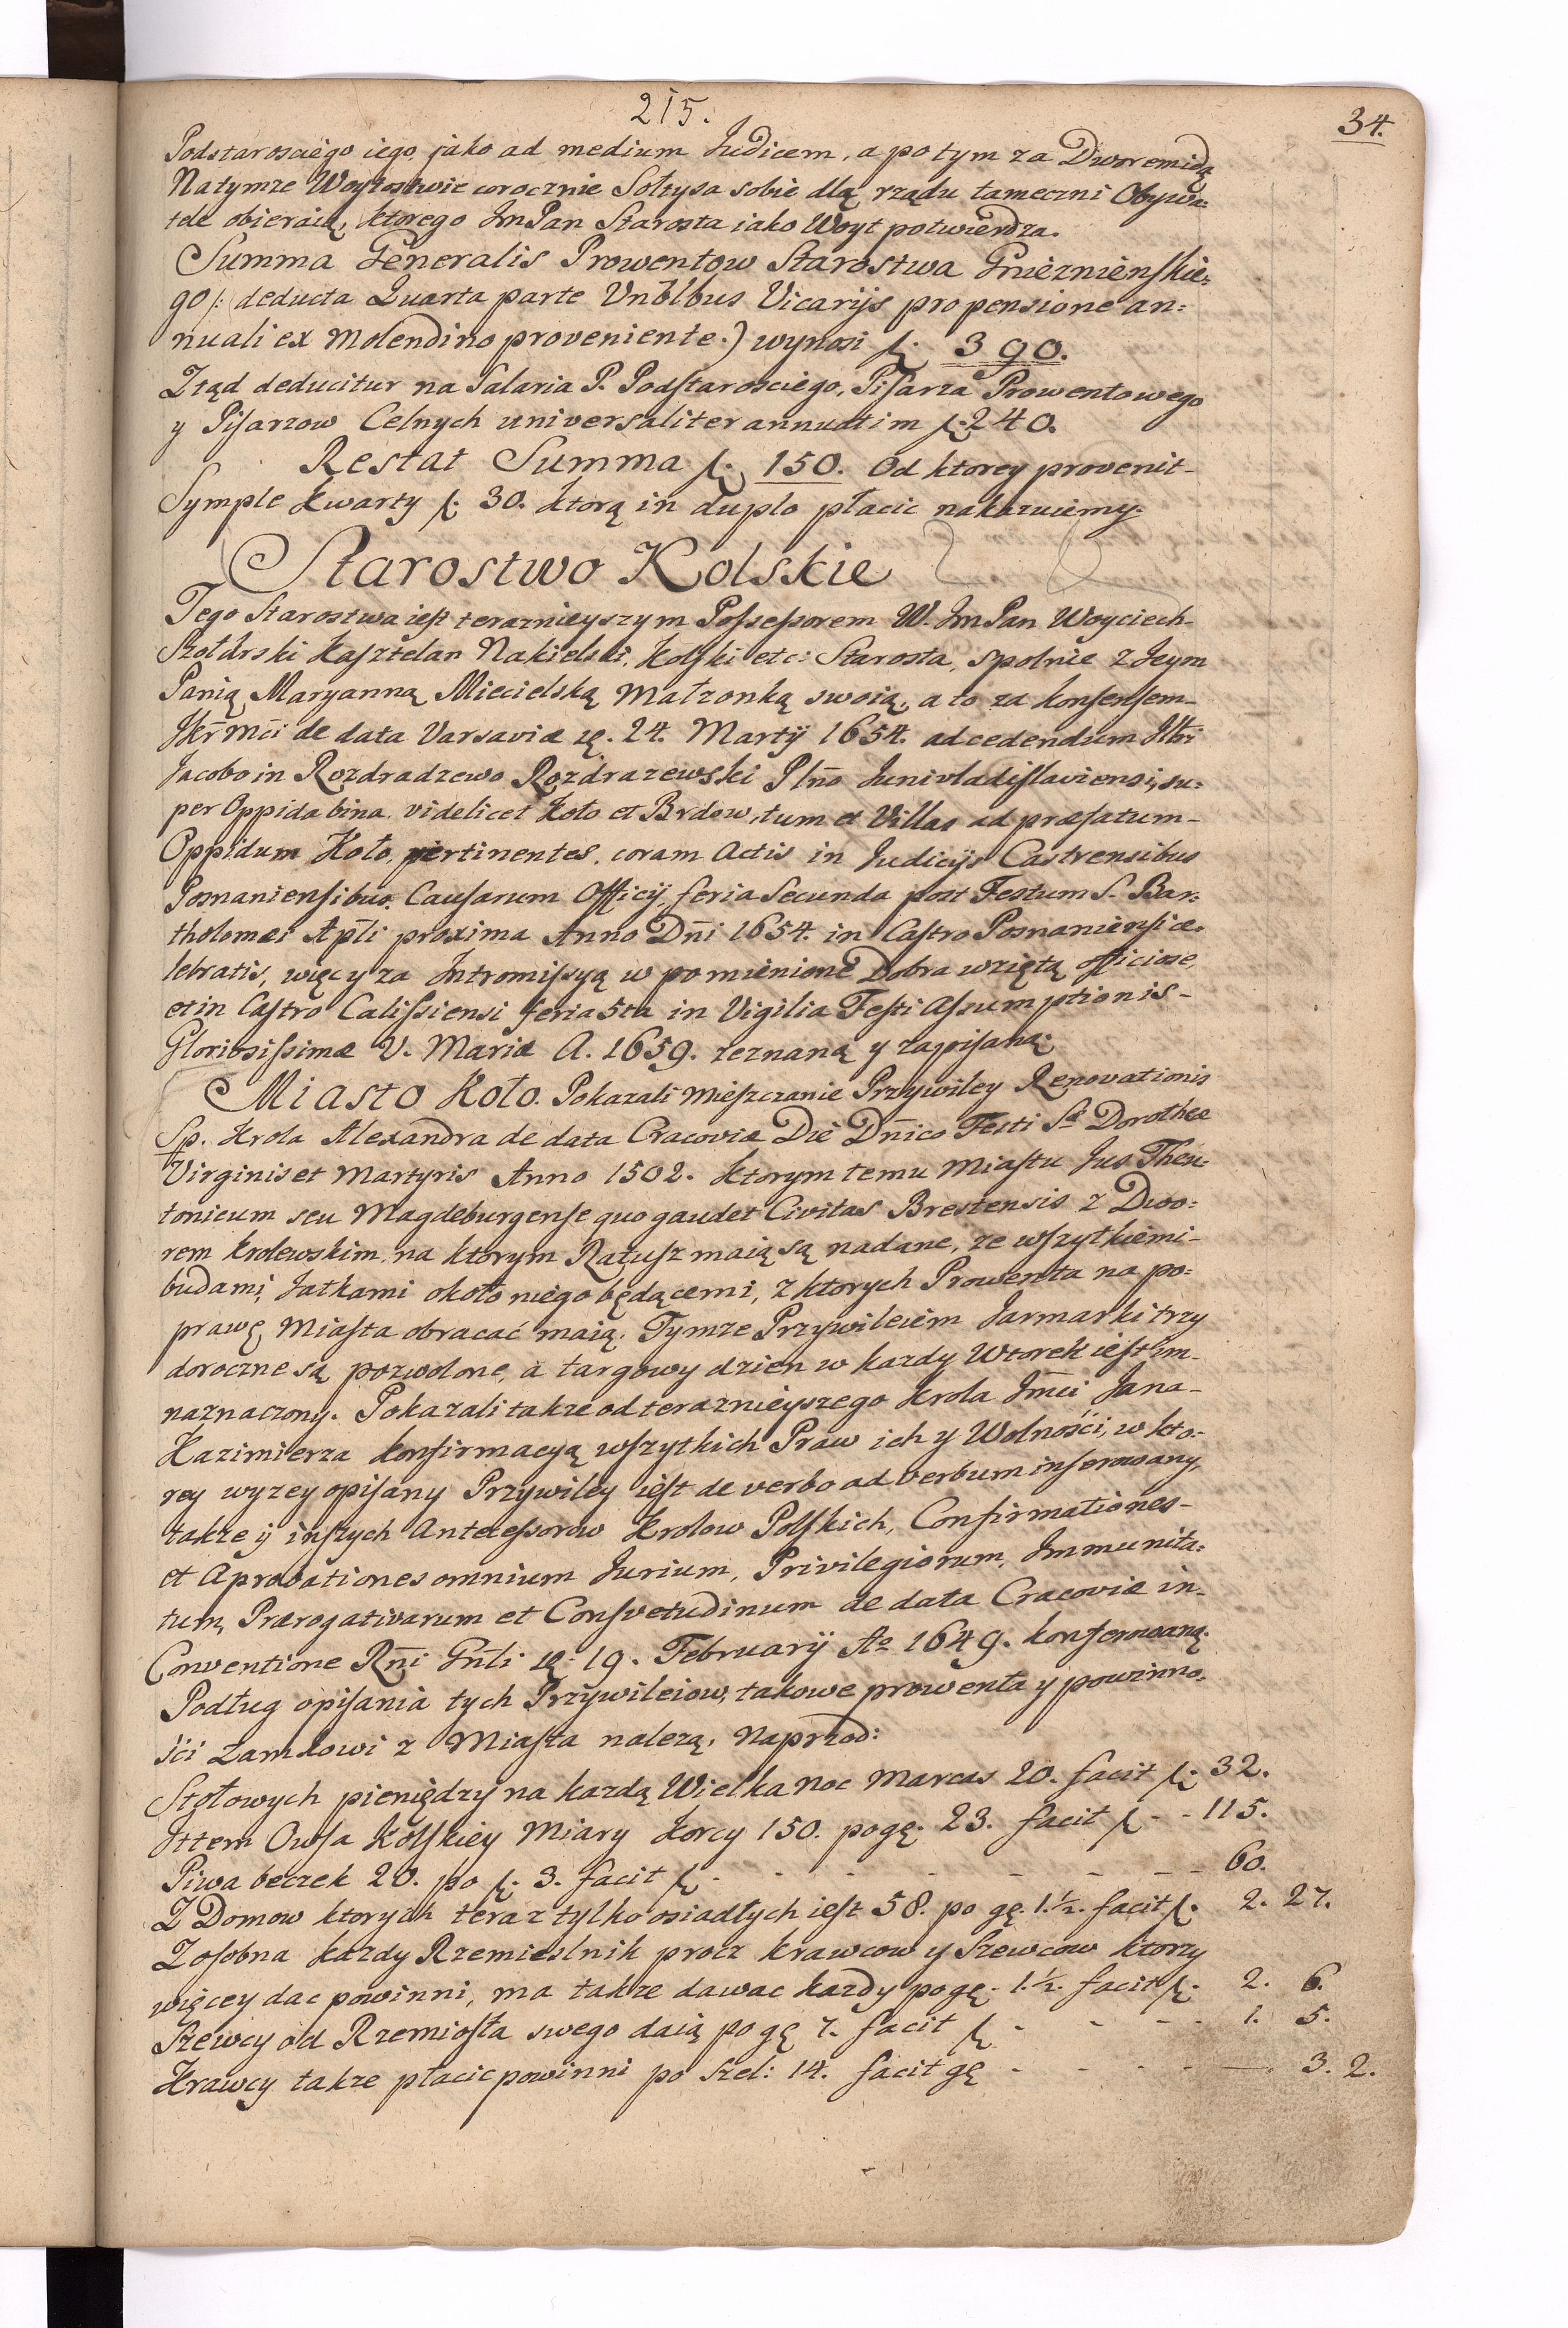 215.
34.
Podstarosciego iego, jako ad medium Judicem, a potym za Dworem idą
Natymze Woytostwie corocznie Sołtysa sobie dlą rządu tameczni Obywa:
tele obieraią, ktorego JmPan Starosta iako Woyt potwierdza.
Summa Generalis Prowentow Starostwa Gnieznienskie:
go /: deducta Quarta parte Vnblbus Vicarijs pro pensione an:
nuali ex Molendino proveniente.) wynosi f. 390.
Ztąd deducitur na Salaria P. Podstarosciego, Pisarza Prowentowego
y Pisarzow Celnych universaliter annuatim f. 240.
Restat Summa f. 150. Od ktorey provenit-
Symple Kwarty f. 30. ktorą in duplo płacic nakazuiemy.
Starostwo Kolskie
Tego Starostwa iest teraznieyszym Possessorem W. JmPan Woyciech-
Szołdrski Kasztelan Nakielski, Kolski etc: Starosta, spolnie z Jeym
Panią Maryanną Miecielską Małzonką swoią, a to za konsensem-
JKr̄mc̄i de data Varsaviæ 24. Martij 1654. ad cedendum Illri
Jacobo in Rozdradzewo Rozdrazewski Pln̄o Junivladislaviensi, su:
per Oppida bina, videlicet Koło et Brdow, tum et Villas ad præfatum-
Oppidum Koło, pertinentes, coram Actis in Judicijs Castrensibus
Posnaniensibus. Causarum Officij, feria Secunda post Festum S. Bar:
tholomæi Ap̄li proxima Anno Dn̄i 1654. in Castro Posnaniensi ce:
lebratis, więc y za Intromissyą w pomienione Dobra wziętą officiose,
et in Castro Calissiensi feria 5ta in Vigilia Festi Assumptionis-
Gloriosissimæ V. Mariæ A. 1659. zeznaną y zapisaną.
Miasto Koło. Pokazali Mieszczanie Przywiley Renovationis
Sp. Krola Alexandra de data Cracoviæ Die Dn̄ico Festi Sæ Dorotheæ
Virginis et Martyris Anno 1502. ktorym temu Miastu Jus Theu:
tonicum seu Magdeburgense quo gaudet Civitas Brestensis z Dwo:
rem krolewskim, na ktorym Ratusz maią są nadane, ze wszytkiemi-
budami, Jatkami około niego będącemi, z ktorych Prowenta na po:
prawę Miasta obracać maią. Tymze Przywileiem Jarmarki trzy
doroczne są pozwolone, a targowy dzien w kazdy Wtorek iest im-
naznaczony. Pokazali takze od teraznieyszego Krola Jm̄ci Jana-
Kazimierza konfirmacyą wszytkich Praw ich y Wolności, w kto:
rey wyzey opisany Przywiley iest de verbo ad verbum inserowany,
takze ÿ inszych Antecessorow Krolow Polskich, Confirmationes-
et Aprobationes omnium Jurium, Privilegiorum, Immunita:
tum, Prærogativarum et Consvetudinum de data Cracoviæ in-
Conventione Rn̄i Gn̄li 19. Februarij Ao 1649. konferowaną.
Podług opisania tych Przywileiow, takowe prowenta y powinno:
ści Zamkowi z Miasta nalezą, Naprzod:
Stołowych pieniędzy na kazdą Wielkanoc Marcas 20. facit f. 32.
Ittem Owsa Kolskiey Miary Korcy 150. po gę. 23. facit f. - - 115.
Piwa beczek 20. po f. 3. facit f. - - - - - - - 60.
Z Domow ktorych teraz tylko osiadłych iest 58. po gę. 1.½. facit f. 2. 27.
Zosobna kazdy Rzemieslnik procz Krawcow y Szewcow ktorzy
więcey dac powinni, ma takze dawac kazdy po gę. 1.½. facit f. 2. 6.
Szewcy od Rzemiosła swego daią po gę 7. facit f. - - - - 1. 5.
Krawcy takze płacic powinni po szel: 14. facit gę - - - - - 3. 2.